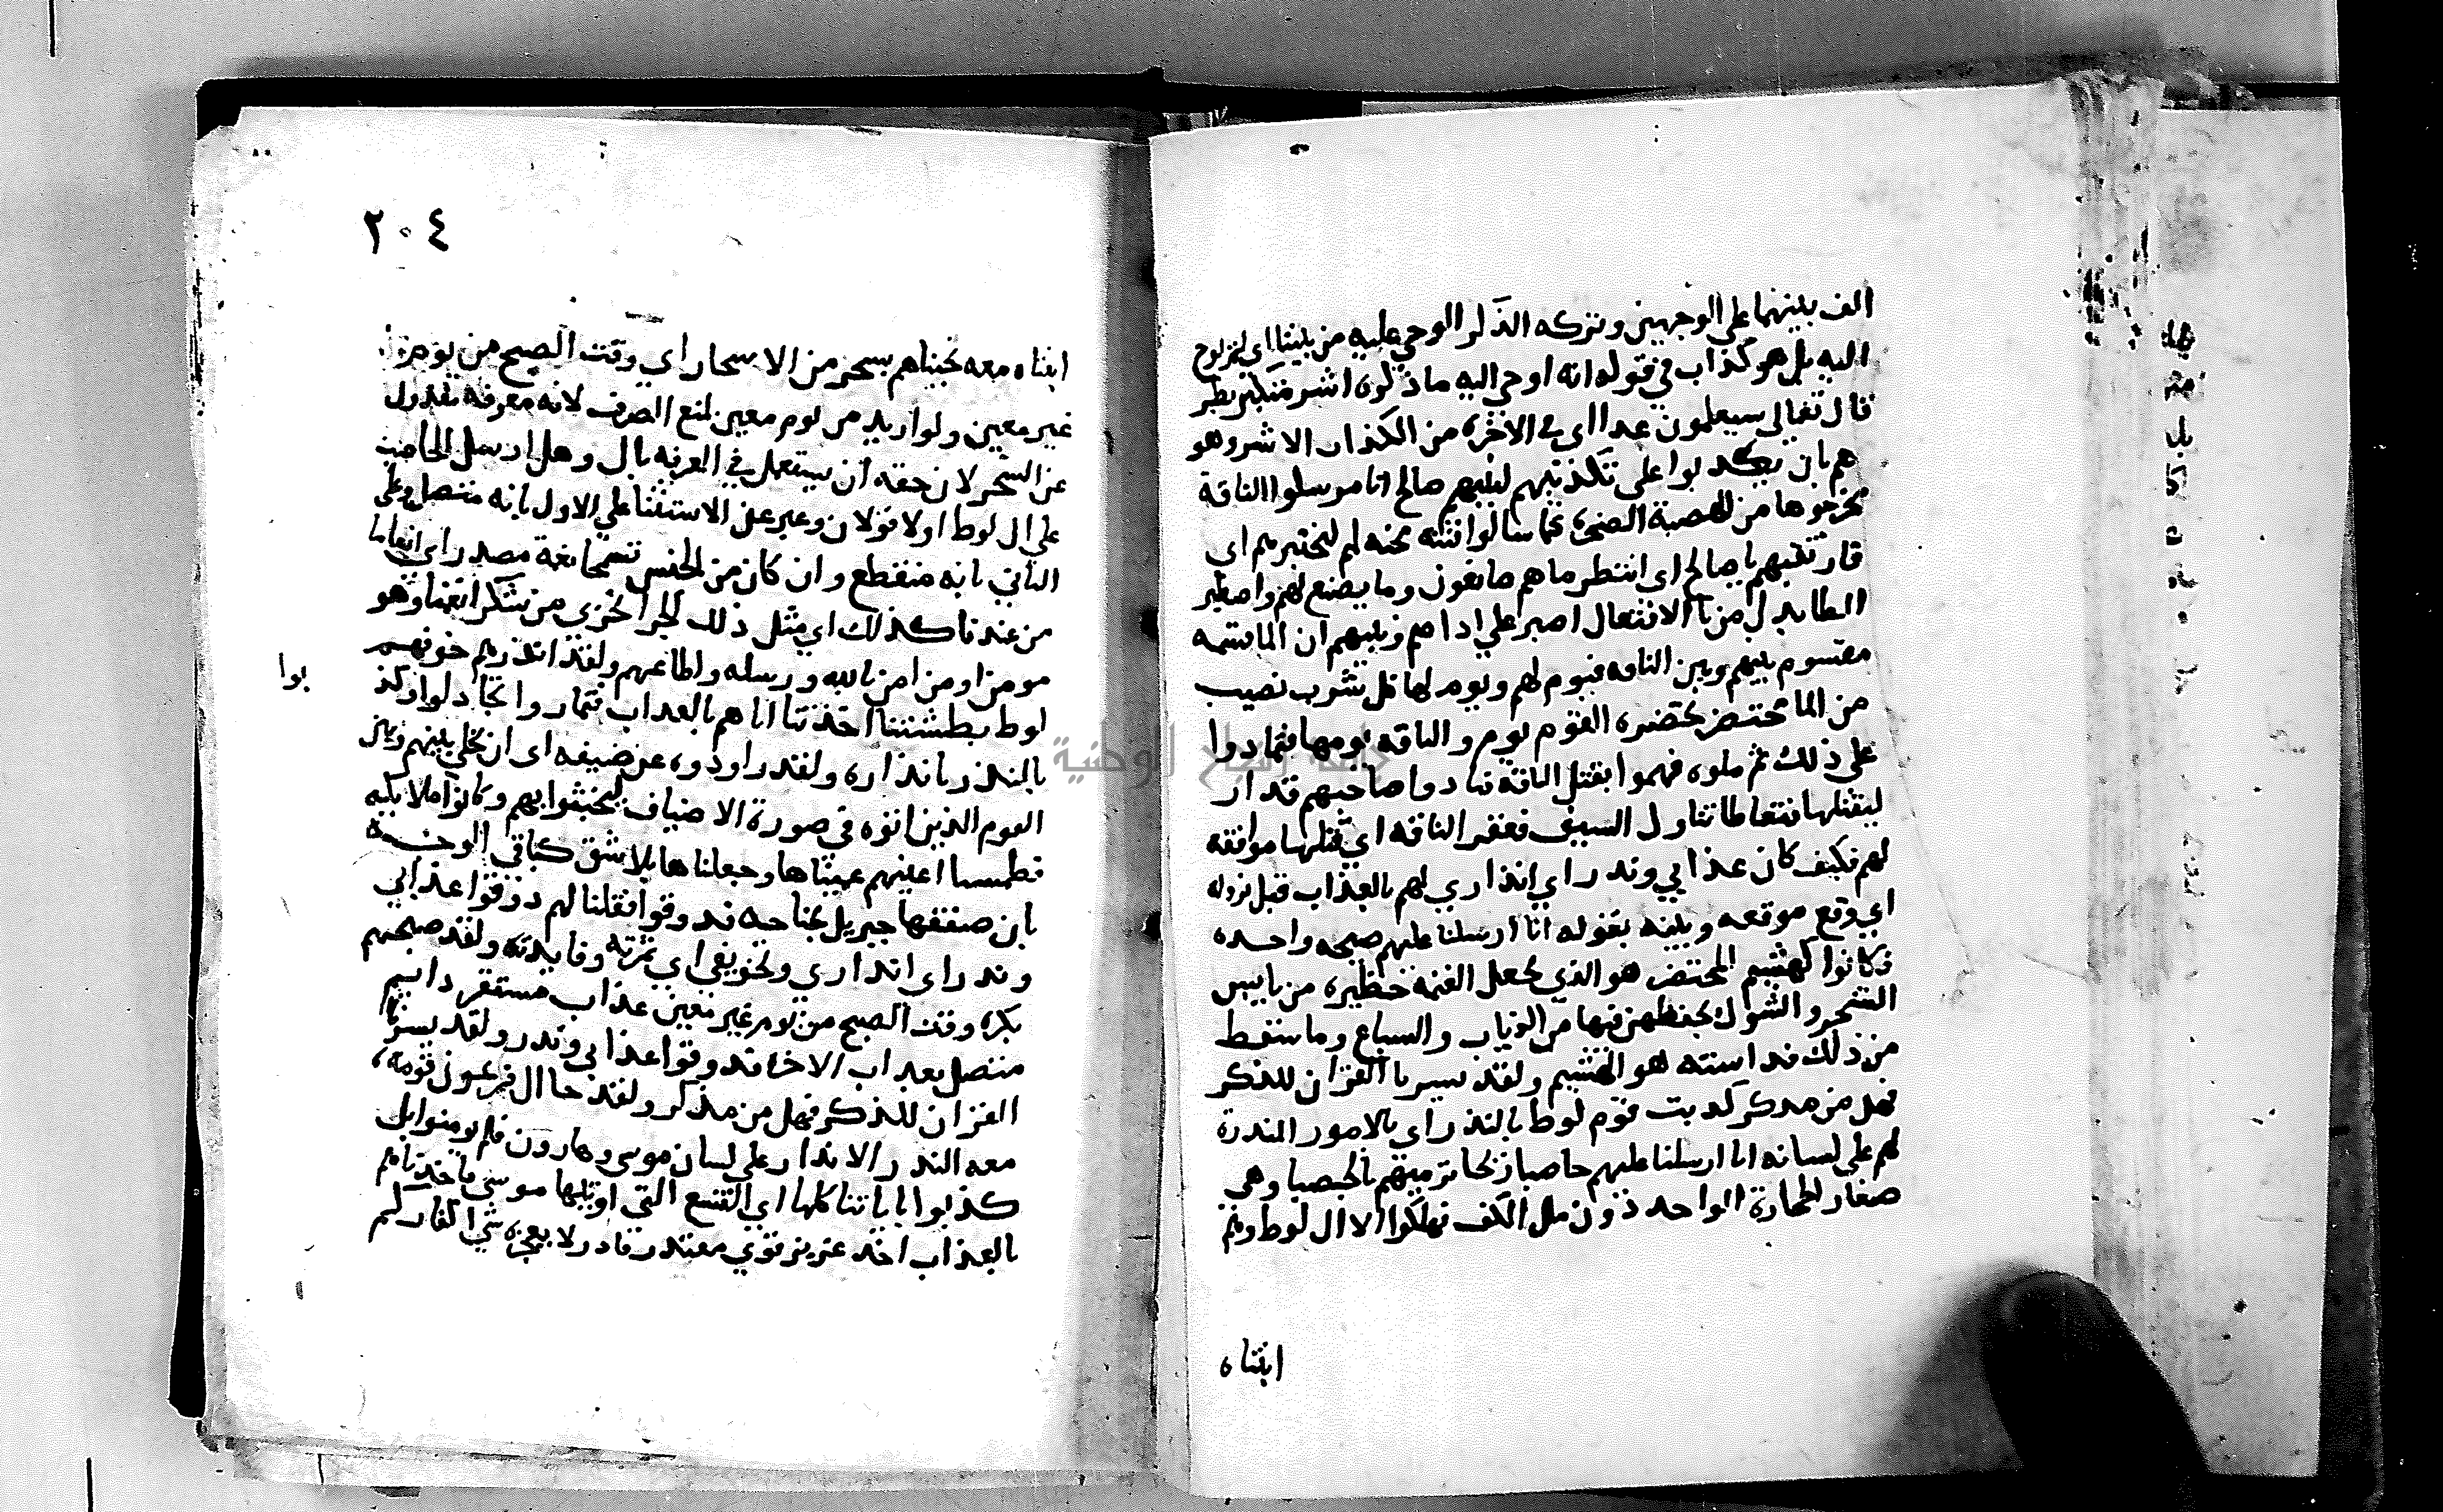 الف بينهما على الوجهين وتركه الذكر الوحي عليه من بيننا اي لم يوح
اليه بل هو كذاب في قوله انه اوحي اليه ماذكره اشر متكبر بطر
قال تعالى سيعلمون غدا اي في الاخرة من الكذاب الاشر وهو
هم بان يعذبوا على تكذيبهم لنبيهم صالح انا مرسلوا الناقة
مخرجوها من الهضبة الصخرة كما سالوا فتنة محنة لهم لنختبرهم اي
فارتقبهم يا صالح اي انتظر ما هم صانعون وما يصنع بهم واصطبر
الطا بدل من تا الافتعال اصبر على اذاهم ونبيهم ان الما قسمة
مقسوم بينهم وبين الناقه فيوم لهم ويوم لها كل شرب نصيب
من الما محتضر يحضره القوم يوم والناقه يومها فتمادوا
على ذلك ثم ملوه فهموا بقتل الناقة فنادوا صاحبهم قدار
ليقتلها فتعاطا تناول السيف فعقر الناقه اي قتلها موافقة
لهم فكيف كان عذابي ونذر اي انذاري لهم بالعذاب قبل نزوله
اي وقع موقعه وبينه بقوله انا ارسلنا عليهم صيحه واحده
فكانوا كهشيم المحتضر هو الذي يجعل لغنمه حظيرة من يابس
الشجر والشوك يحفظهن فيها من الذياب والسباع وما سقط
من ذلك فداسته هو الهشيم ولقد يسرنا القران للذكر
فهل من مدكر كذبت قوم لوط بالنذر اي بالامور المنذرة
لهم على لسانه انا ارسلنا عليهم حاصبا ريحا ترميهم بالحصبا وهي
صغار الحجارة الواحد دون مل الكف فهلكوا الا ال لوط وهم
ابنتاه
٢٠٤
ابنتاه معه نجيناهم بسحر من الاسحار اي وقت الصبح من يوم
غير معين ولو اريد من يوم معين لمنع الصرف لانه معرفة معدول
عن السحر لان حقه ان يستعمل في المعرفه بال وهل ارسل الحاصب
على ال لوط اولا قولان وعبر عن الاستثنا على الاول بانه متصل وعلى
الثاني بانه منقطع وان كان من الجنس تسمحا نعمة مصدر اي انعاما
من عندنا كذلك اي مثل ذلك الجزا نجزي من شكر انعمنا وهو
مومن او من امن بالله ورسله واطاعهم ولقد انذرهم خوفهم
لوط بطشتنا اخذتنا اياهم بالعذاب فتماروا تجادلوا وكذ
بوا
بالنذر بانذاره ولقد راودوه عن ضيفه اي ان يخلي بينهم وبين
القوم الذين اتوه في صورة الاضياف ليخبثوا بهم وكانوا ملايكه
فطمسنا اعينهم عميناها وجعلناها بلا شق كباقي الوجه
بان صفقها جبريل بجناحه فذوقوا فقلنا لهم ذوقوا عذابي
ونذر اي انذاري وتخويفي اي ثمرته وفايدته ولقد صبحهم
بكرة وقت الصبح من يوم غير معين عذاب مستقر دايم
متصل بعذاب الاخرة فذوقوا عذابي ونذر ولقد يسرنا
القران للذكر فهل من مدكر ولقد جا ال فرعون قومه
معه النذر الانذار على لسان موسى وهارون فلم يومنوا بل
كذبوا باياتنا كلها اي التسع التي اوتيها موسى فاخذناهم
بالعذاب اخذ عزيز قوي مقتدر قادر لا يعجزه شي اكفاركم